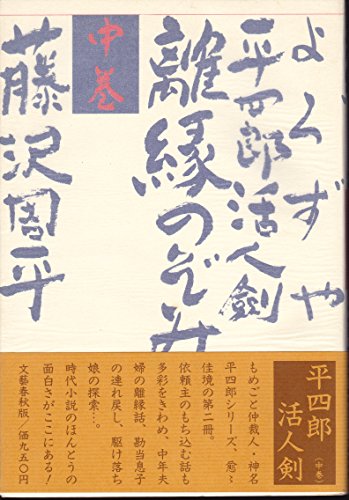 よろずや
平四郎活人剣
離縁のぞみ
中巻
藤沢周平
平四郎
活人剣
(中巻)
もめごと仲裁人・神名
平四郎シリーズ、愈々
佳境の第二冊。
依頼主のもち込む話も
多彩をきわめ、中年夫
婦の離縁話、勘当息子
の連れ戻し、駆け落ち
娘の探索…。
時代小説のほんとうの
面白さがここにある!
文藝春秋版/価九五〇円